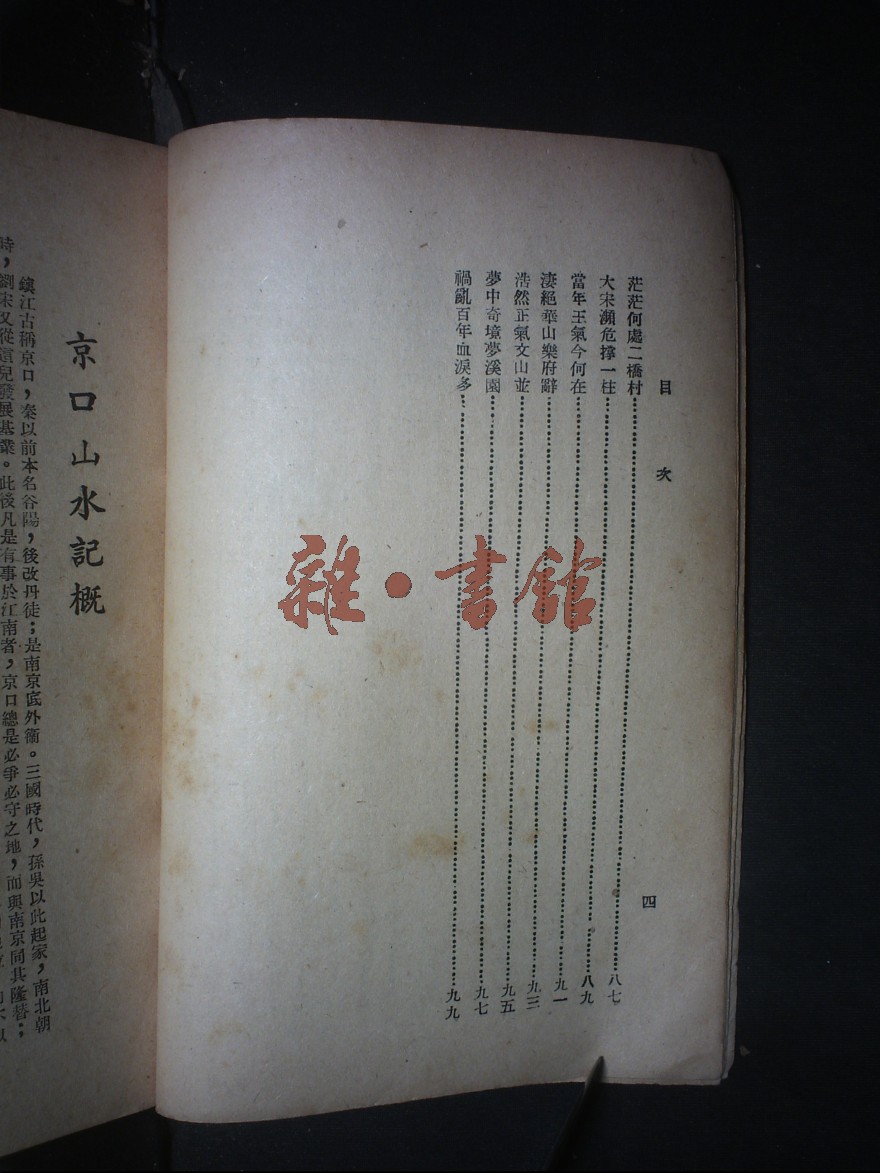 目 次
四
茫茫何處二橋村……八七
大宋瀕危撐一柱……八九
當年王氣今何在……九一
淒絕華山樂府辭……九三
浩然正氣文山並……九五
夢中奇境夢溪園……九七
禍亂百年血淚多……九九
雜·書館
京口山水記概
鎮江古稱京口,秦以前本名谷陽,後改丹徒;是南京底外衞。三國時代,孫吳以此起家,南北朝
時,劉宋又從這兒發展基業。此後凡是有事於江南者,京口總是必爭必守之地,而與南京同其隆替;